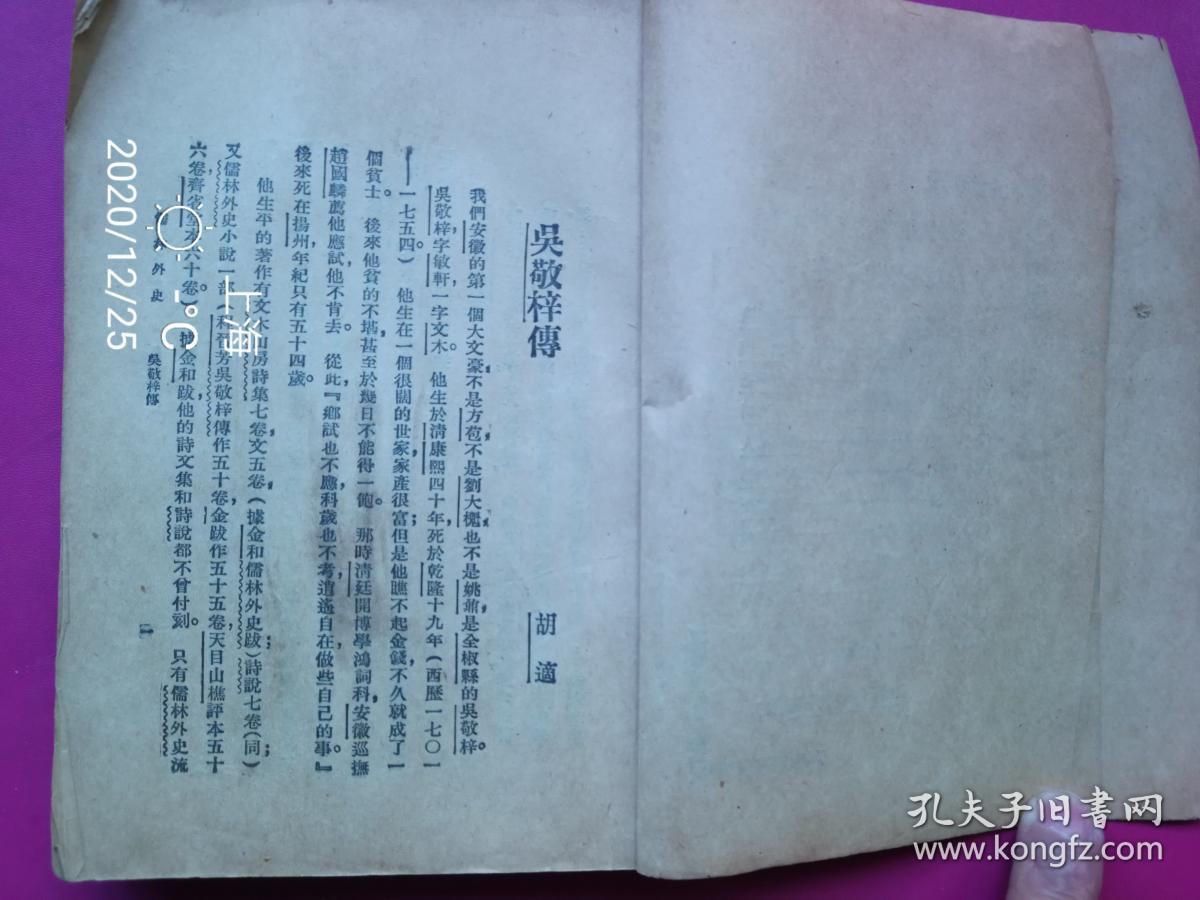 吳敬梓傳
胡適
我們安徽的第一個大文豪，不是方苞，不是劉大櫆，也不是姚鼐，是全椒縣的吳敬梓。
吳敬梓，字敏軒，一字文木。他生於清康熙四十年，死於乾隆十九年（西歷一七〇一
——一七五四）。他生在一個很闊的世家，家產很富；但是他瞧不起金錢，不久就成了一
個貧士。後來他貧的不堪，甚至於幾日不能得一飽。那時清廷開博學鴻詞科，安徽巡撫
趙國麟薦他應試，他不肯去。從此，『鄉試也不應，科歲也不考，逍遙自在，做些自己的事。』
後來死在揚州，年紀只有五十四歲。
他生平的著作有文木山房詩集七卷，文五卷，（據金和儒林外史跋）；詩說七卷（同）；
又儒林外史小說一部（程晉芳吳敬梓傳作五十卷，金跋作五十五卷，天目山樵評本五十
六卷，齊省堂本六十卷。）據金和跋，他的詩文集和詩說都不曾付刻。只有儒林外史流
外史　吳敬梓傳
一
上海
-°C
2020/12/25
孔夫子旧书网
www.kongfz.com